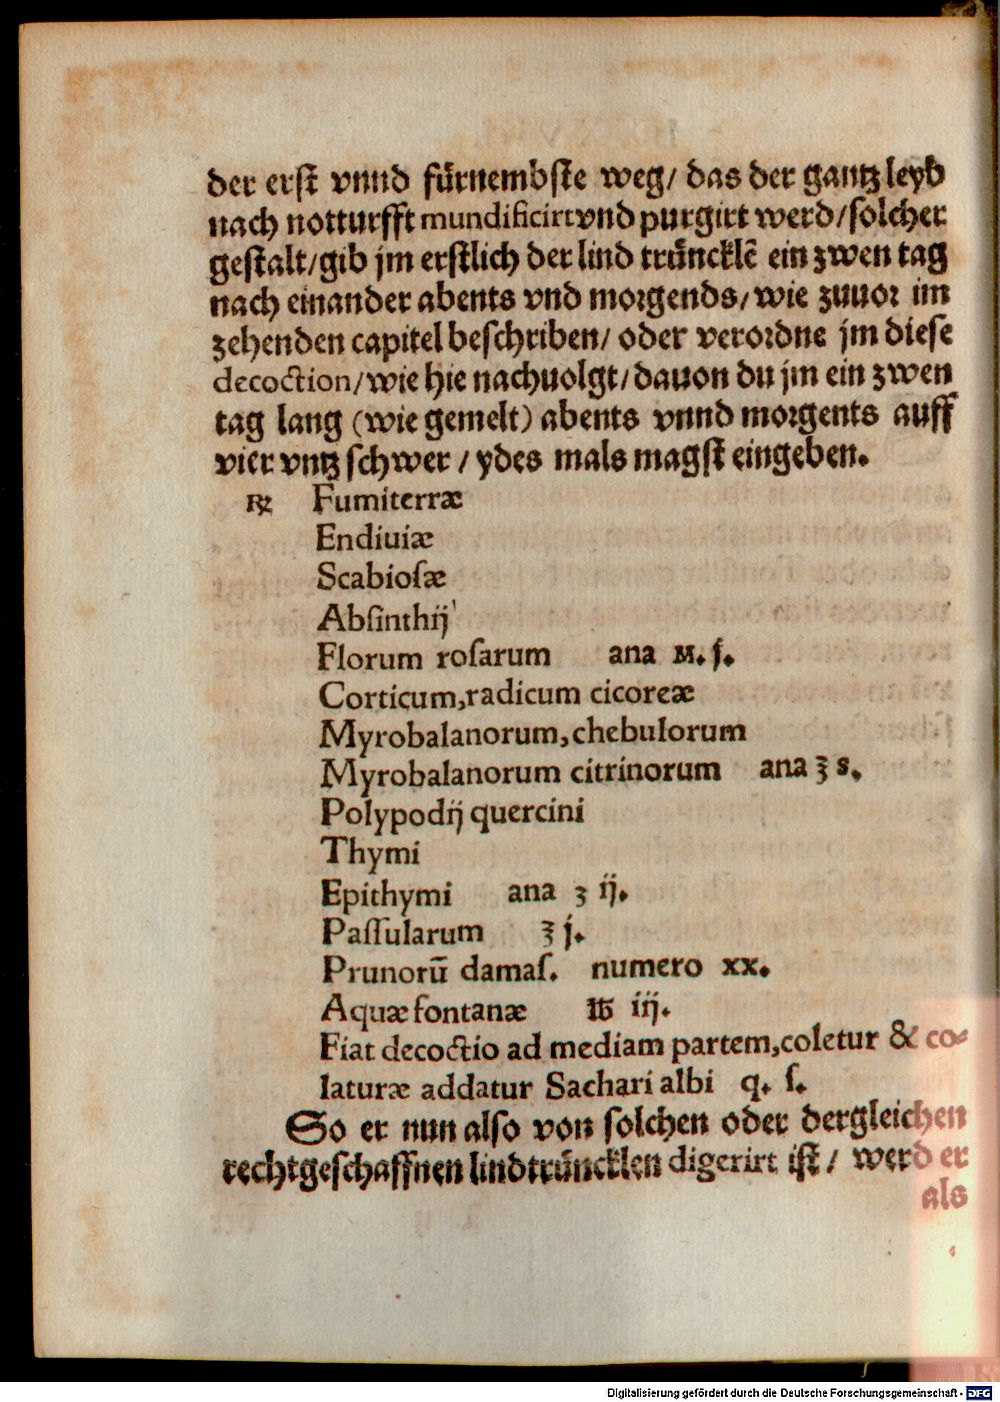 der erst vnnd fürnembste weg/ das der gantz leyb
nach notturfft mundificirt vnd purgirt werd/solcher
gestalt/gib jm erstlich der lind trüncklẽ ein zwen tag
nach einander abents vnd morgends/wie zuuor im
zehenden capitel beschriben/ oder verordne jm diese
decoction/wie hie nachuolgt/dauon du jm ein zwen
tag lang (wie gemelt) abents vnnd morgents auff
vier vntz schwer / ydes mals magst eingeben.
℞ Fumiterræ
Endiuiæ
Scabiosæ
Absinthij
Florum rosarum ana M. ſ.
Corticum,radicum cicoreæ
Myrobalanorum,chebulorum
Myrobalanorum citrinorum ana ʒ s.
Polypodij quercini
Thymi
Epithymi ana ʒ ij.
Passularum ℥ j.
Prunorũ damas. numero xx.
Aquæ fontanæ ℔ iij.
Fiat decoctio ad mediam partem,coletur & co-
laturæ addatur Sachari albi q. s.
So er nun also von solchen oder dergleichen
rechtgeschaffnen lindtrüncklen digerirt ist/ werd er
als
Digitalisierung gefördert durch die Deutsche Forschungsgemeinschaft - DFG